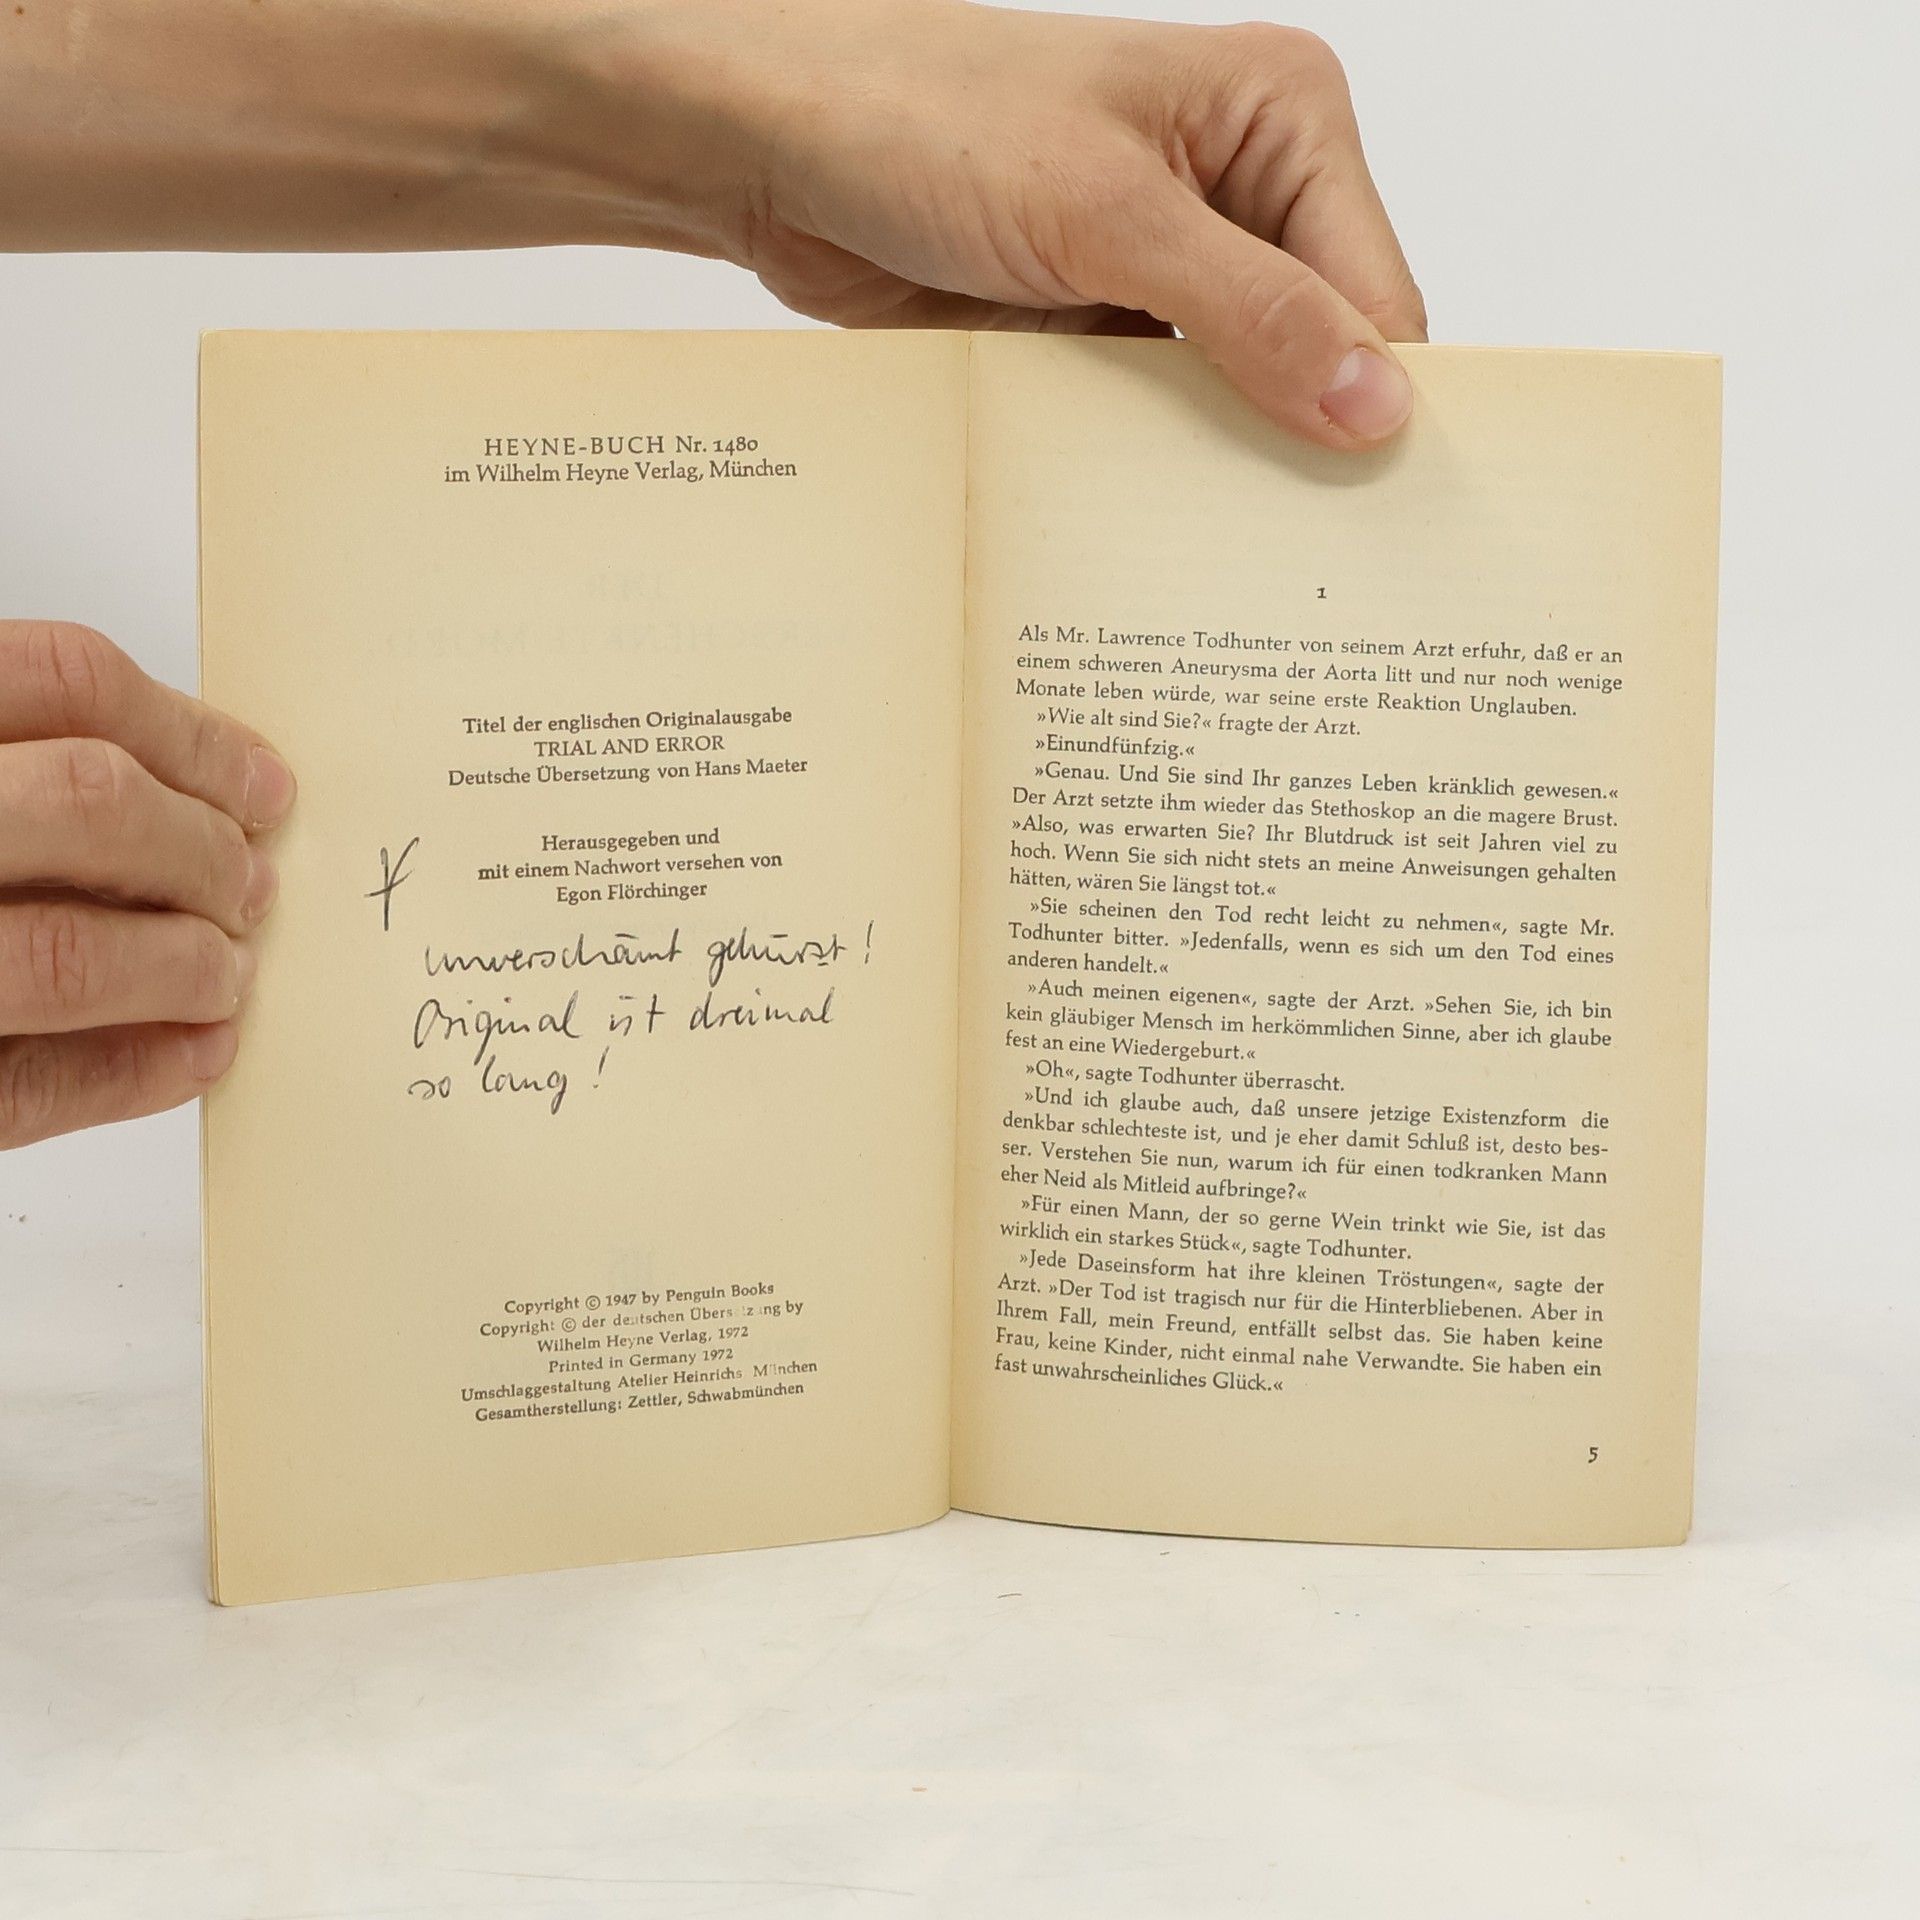 HEYNE-BUCH Nr. 1480
im Wilhelm Heyne Verlag, München
Titel der englischen Originalausgabe
TRIAL AND ERROR
Deutsche Übersetzung von Hans Maeter
Herausgegeben und
mit einem Nachwort versehen von
Egon Flörchinger
unverschämt gekürzt!
Original ist dreimal
so lang!
Copyright © 1947 by Penguin Books
Copyright © der deutschen Übersetzung by
Wilhelm Heyne Verlag, 1972
Printed in Germany 1972
Umschlaggestaltung Atelier Heinrichs München
Gesamtherstellung: Zettler, Schwabmünchen
1
Als Mr. Lawrence Todhunter von seinem Arzt erfuhr, daß er an
einem schweren Aneurysma der Aorta litt und nur noch wenige
Monate leben würde, war seine erste Reaktion Unglauben.
»Wie alt sind Sie?« fragte der Arzt.
»Einundfünfzig.«
»Genau. Und Sie sind Ihr ganzes Leben kränklich gewesen.«
Der Arzt setzte ihm wieder das Stethoskop an die magere Brust.
»Also, was erwarten Sie? Ihr Blutdruck ist seit Jahren viel zu
hoch. Wenn Sie sich nicht stets an meine Anweisungen gehalten
hätten, wären Sie längst tot.«
»Sie scheinen den Tod recht leicht zu nehmen«, sagte Mr.
Todhunter bitter. »Jedenfalls, wenn es sich um den Tod eines
anderen handelt.«
»Auch meinen eigenen«, sagte der Arzt. »Sehen Sie, ich bin
kein gläubiger Mensch im herkömmlichen Sinne, aber ich glaube
fest an eine Wiedergeburt.«
»Oh«, sagte Todhunter überrascht.
»Und ich glaube auch, daß unsere jetzige Existenzform die
denkbar schlechteste ist, und je eher damit Schluß ist, desto bes-
ser. Verstehen Sie nun, warum ich für einen todkranken Mann
eher Neid als Mitleid aufbringe?«
»Für einen Mann, der so gerne Wein trinkt wie Sie, ist das
wirklich ein starkes Stück«, sagte Todhunter.
»Jede Daseinsform hat ihre kleinen Tröstungen«, sagte der
Arzt. »Der Tod ist tragisch nur für die Hinterbliebenen. Aber in
Ihrem Fall, mein Freund, entfällt selbst das. Sie haben keine
Frau, keine Kinder, nicht einmal nahe Verwandte. Sie haben ein
fast unwahrscheinliches Glück.«
5